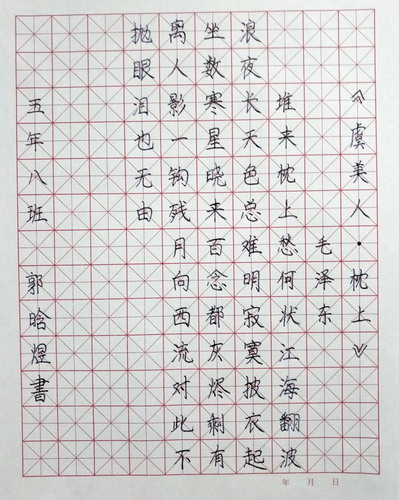 《虞美人·枕上》
毛泽东
堆来枕上愁何状江海翻波
浪夜长天色总难明寂寞披衣起
坐数寒星晓来百念都灰烬剩有
离人影一钩残月向西流对此不
抛眼泪也无由
五年八班 郭晗煜書
年 月 日